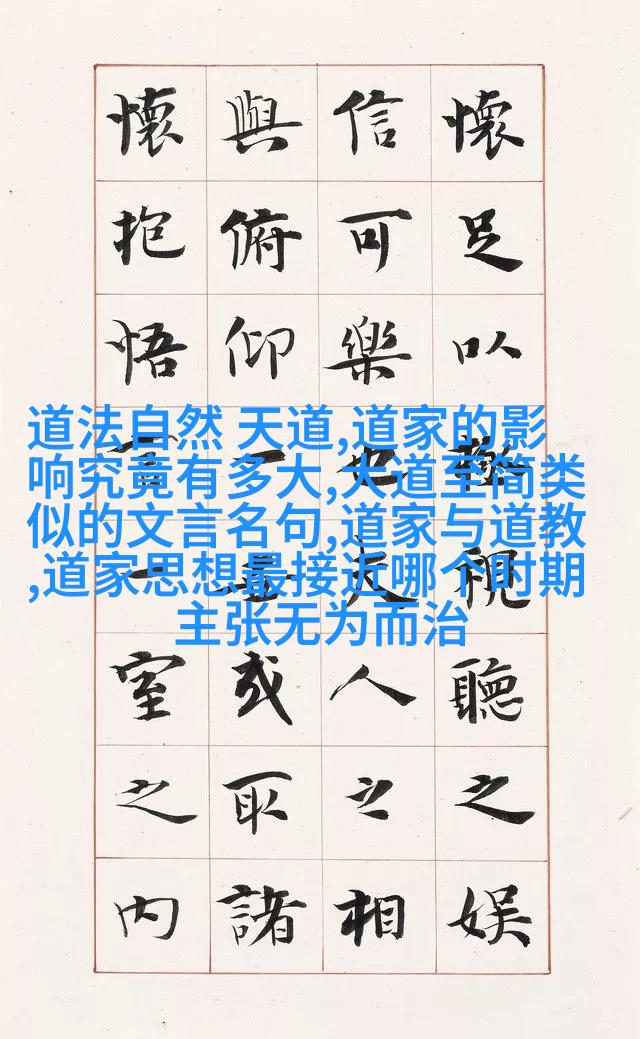 懷足以視聽之娛
信可樂也夫人之相
與俯仰一世或取諸
懷抱悟言一室之内
道法自然 天道,道家的影
响究竟有多大,大道至简类
似的文言名句,道家与道教
,道家思想最接近哪个时期
主张无为而治